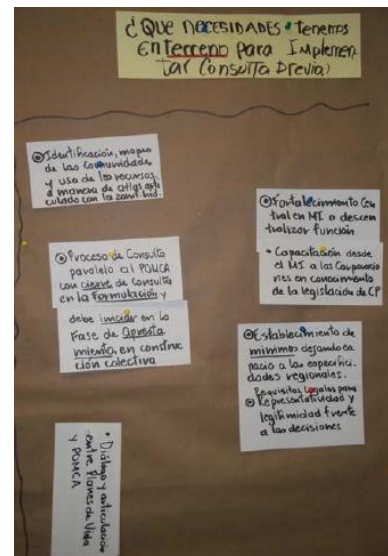 ¿QUE NECESIDADES tenemos
En terreno para Implemen
tar Consulta Previa?
Identificación, mapeo
de las Comunidades
y uso de los recursos,
a manera de atlas arti
culado con la zonif. hid.
Proceso de Consulta
paralelo al POMCA
con cierre de Consulta
en la Formulación y
debe iniciar en la
Fase de Apresta
miento, en construc
ción colectiva
• Diálogo y articulación
entre Planes de Vida
y POMCA
Fortalecimiento Cen
tral en MI o descen
tralizar función
• Capacitación desde
el MI a las Corporacio
nes en conocimiento
de la legislación de CP
Establecimiento de
mínimos dejando es
pacio a las especifici
dades regionales.
Requisitos Legales para
Representatividad y
legitimidad frente
a las decisiones